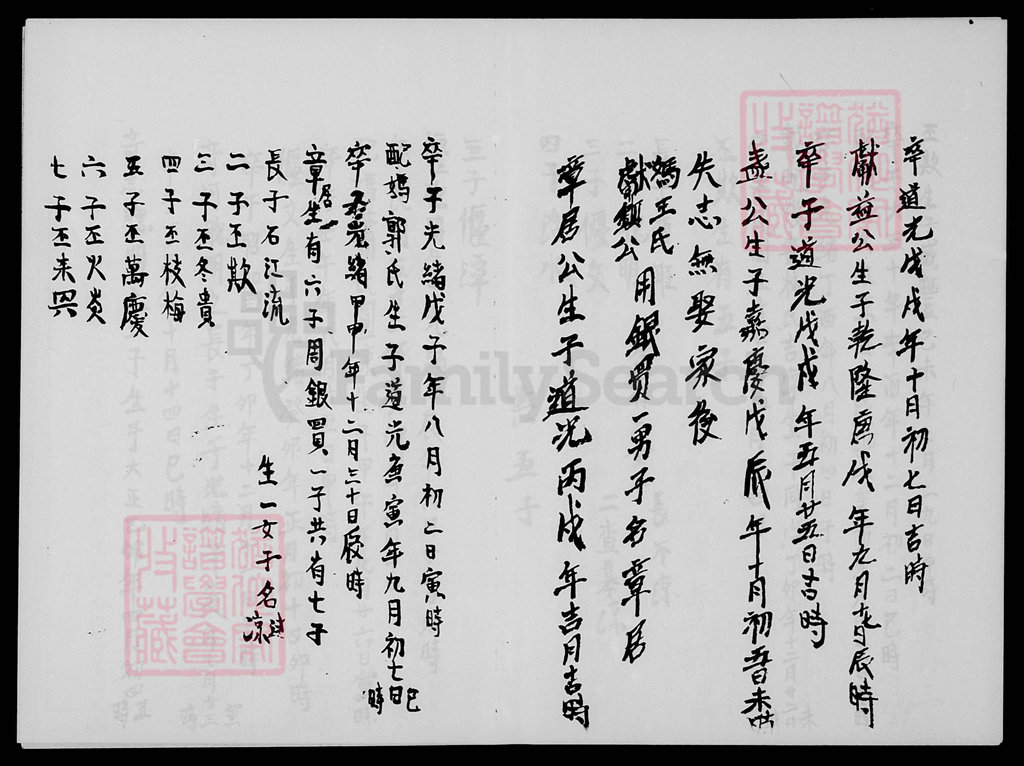 卒道光戊戌年十月初七日吉時
獻益公生于乾隆庚戌年九月十九日辰時
卒于道光戊戌年五月廿五日吉時
盏公生于嘉慶戊辰年十月初五日未時
失志無娶家後
媽王氏
獻鎮公 用銀買一男子名章居
章居公生于道光丙戌年吉月吉時
卒于光緒戊子年八月初二日寅時
配媽郭氏生于道光庚寅年九月初七日巳時
卒于光緒甲申年十二月三十日辰時
章居生有六子周銀買一子共有七子
生一女子名凉
長子石江流
二子丕欺
三子丕冬貴
四子丕枝梅
五子丕萬慶
六子丕火炎
七子丕来興
臺灣省
譜學會
收藏
FamilySearch